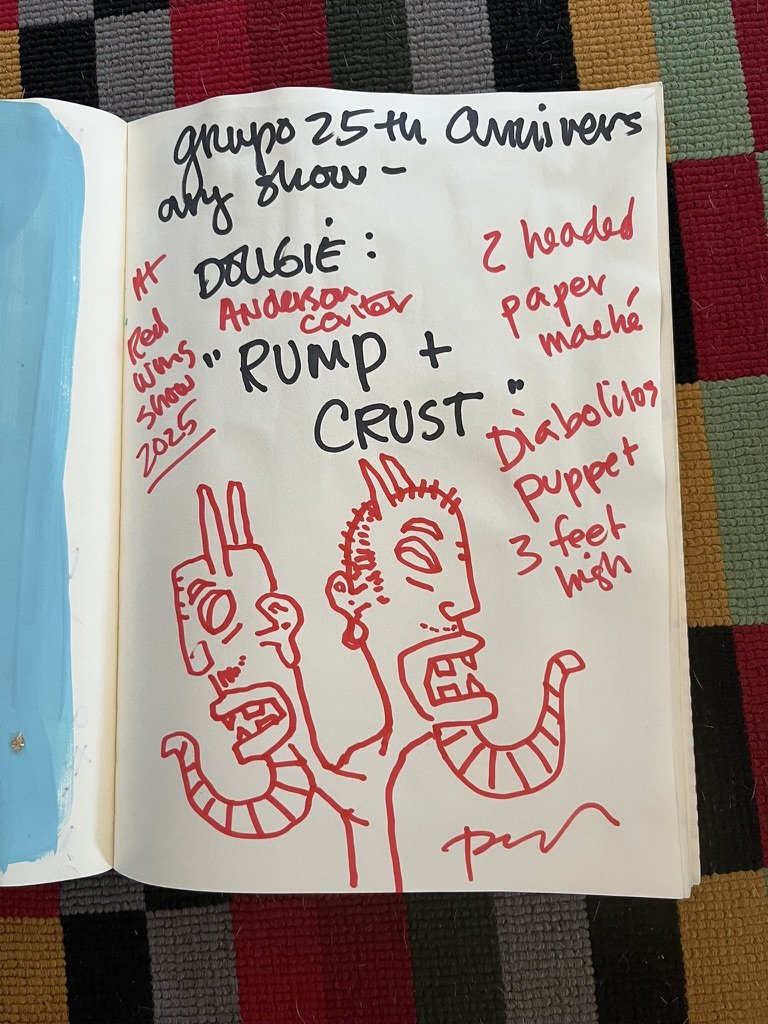 grupo 25th Annivers
ary show -
DOUGIE :
Anderson
Center
"RUMP +
CRUST"
At
Red
Wing
show
2025
2 headed
paper
maché
Diabolitos
puppet
3 feet
high